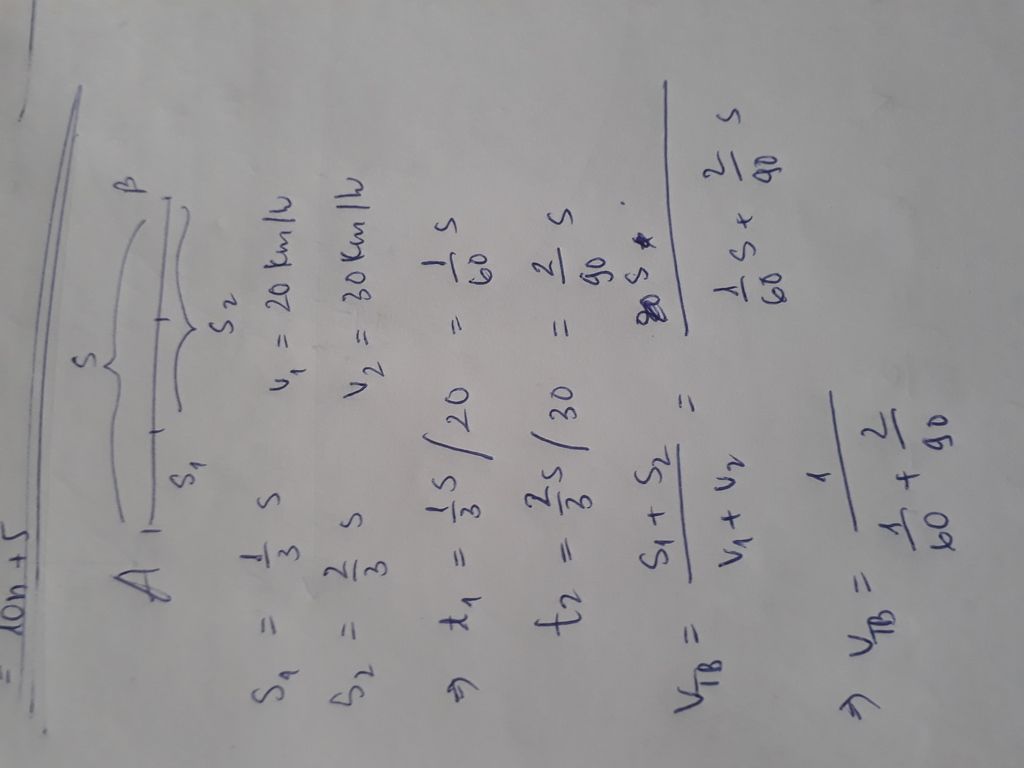 = 10n+5
S
A B
S1 S2
S1 = 1/3 S v1 = 20 km/h
S2 = 2/3 S v2 = 30 km/h
=> t1 = 1/3 S / 20 = 1/60 S
t2 = 2/3 S / 30 = 2/90 S
vTB = (S1 + S2)/(v1 + v2) = S/(1/60 S + 2/90 S)
=> vTB = 1/(1/60 + 2/90)